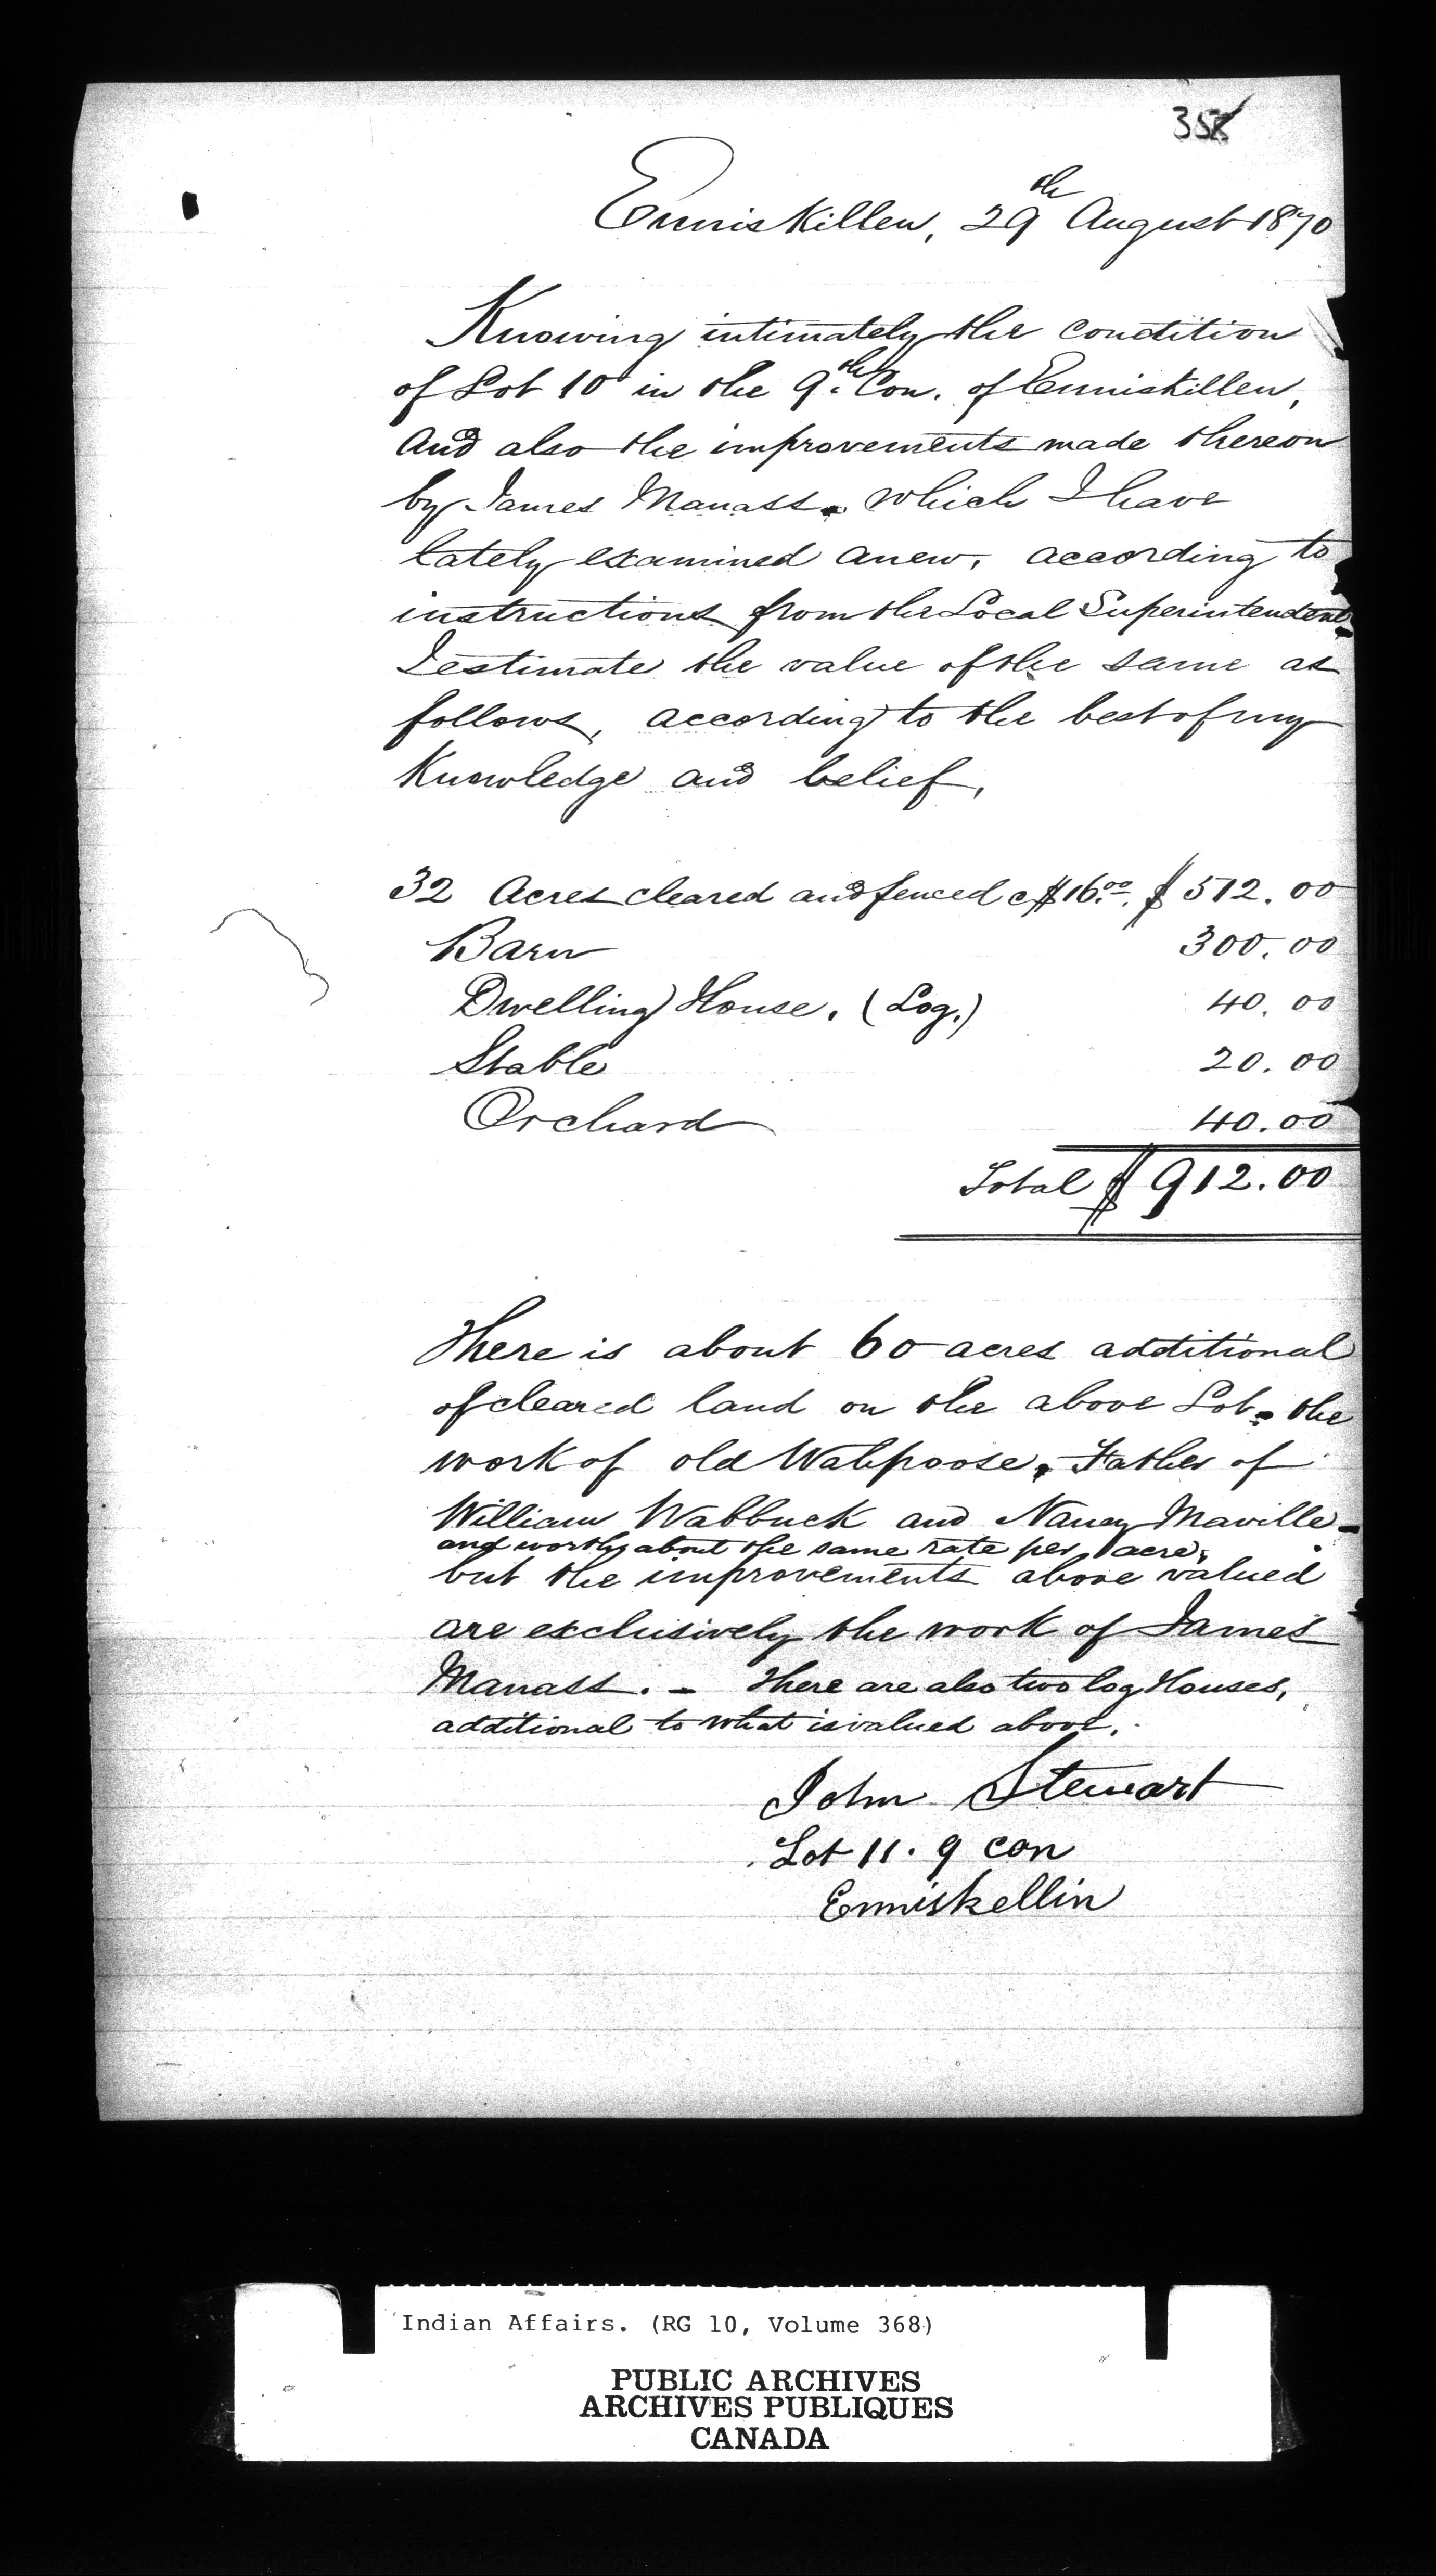 358
Enniskillen, 29th August 1870
Knowing intimately the condition
of Lot 10 in the 9th Con. of Enniskillen,
and also the improvements made thereon
by James Manass. which I have
lately examined anew, according to
instructions from the Local Superintendent
I estimate the value of the same as
follows, according to the best of my
Knowledge and belief,
32 Acres cleared and fenced @ $16.00. $ 512.00
Barn 300.00
Dwelling House. (Log.) 40.00
Stable 20.00
Orchard 40.00
Total $ 912.00
There is about 60 acres additional
of cleared land on the above Lot - the
work of old Wahpoose, Father of
William Wabbuck and Nancy Maville -
and worth about the same rate per acre,
but the improvements above valued
are exclusively the work of James
Manass. - There are also two log Houses,
additional to what is valued above.
John Stewart
Lot 11. 9 con
Enniskellin
Indian Affairs. (RG 10, Volume 368)
PUBLIC ARCHIVES
ARCHIVES PUBLIQUES
CANADA